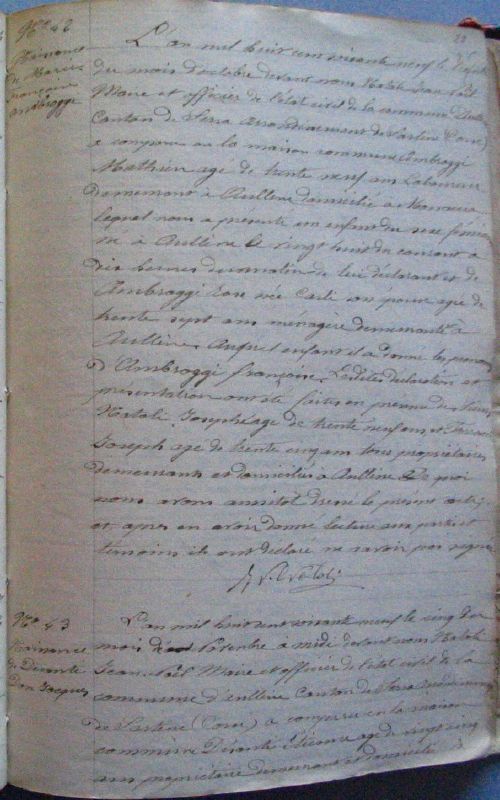 No 42
Naissance
de Marie
Françoise
Ambroggi
L'an mil huit cent soixante neuf le
du mois d'octobre devant nous Natali Jean Noël
Maire et officier de l'état civil de la commune d'Aullène
Canton de Serra Arrondissement de Sartène (Corse)
a comparu en la maison commune Ambroggi
Mathieu agé de trente neuf ans Laboureur
demeurant à Aullène domicilié à
lequel nous a présenté un enfant du sexe féminin
né à Aullène le vingt huit du courant à
dix heures du matin de lui déclarant et de
Ambroggi Rose née Carli son épouse agée de
trente sept ans ménagère demeurante à
Aullène. Auquel enfant il a donné les prénoms
d'Ambroggi françoise. Lesdites déclaration et
présentation ont été faites en presence de
Natali Joseph agé de trente neuf ans et
Joseph agé de trente cinq ans tous propriétaires
demeurants et domiciliés à Aullène De quoi
nous avons aussitot dressé le présent acte
et apres en avoir donné lecture aux parties et
témoins ils ont déclaré ne savoir pas signer
No 43
Naissance
de
Don Jacques
L'an mil huit cent soixante neuf le cinq du
mois de Novembre à midi devant nous Natali
Jean Noël Maire et officier de l'état civil de la
commune d'Aullène Canton de Serra Arrondissement
de Sartène (Corse) a comparu en la maison
commune Etienne agé de vingt cinq
ans propriétaire demeurant et domicilié à